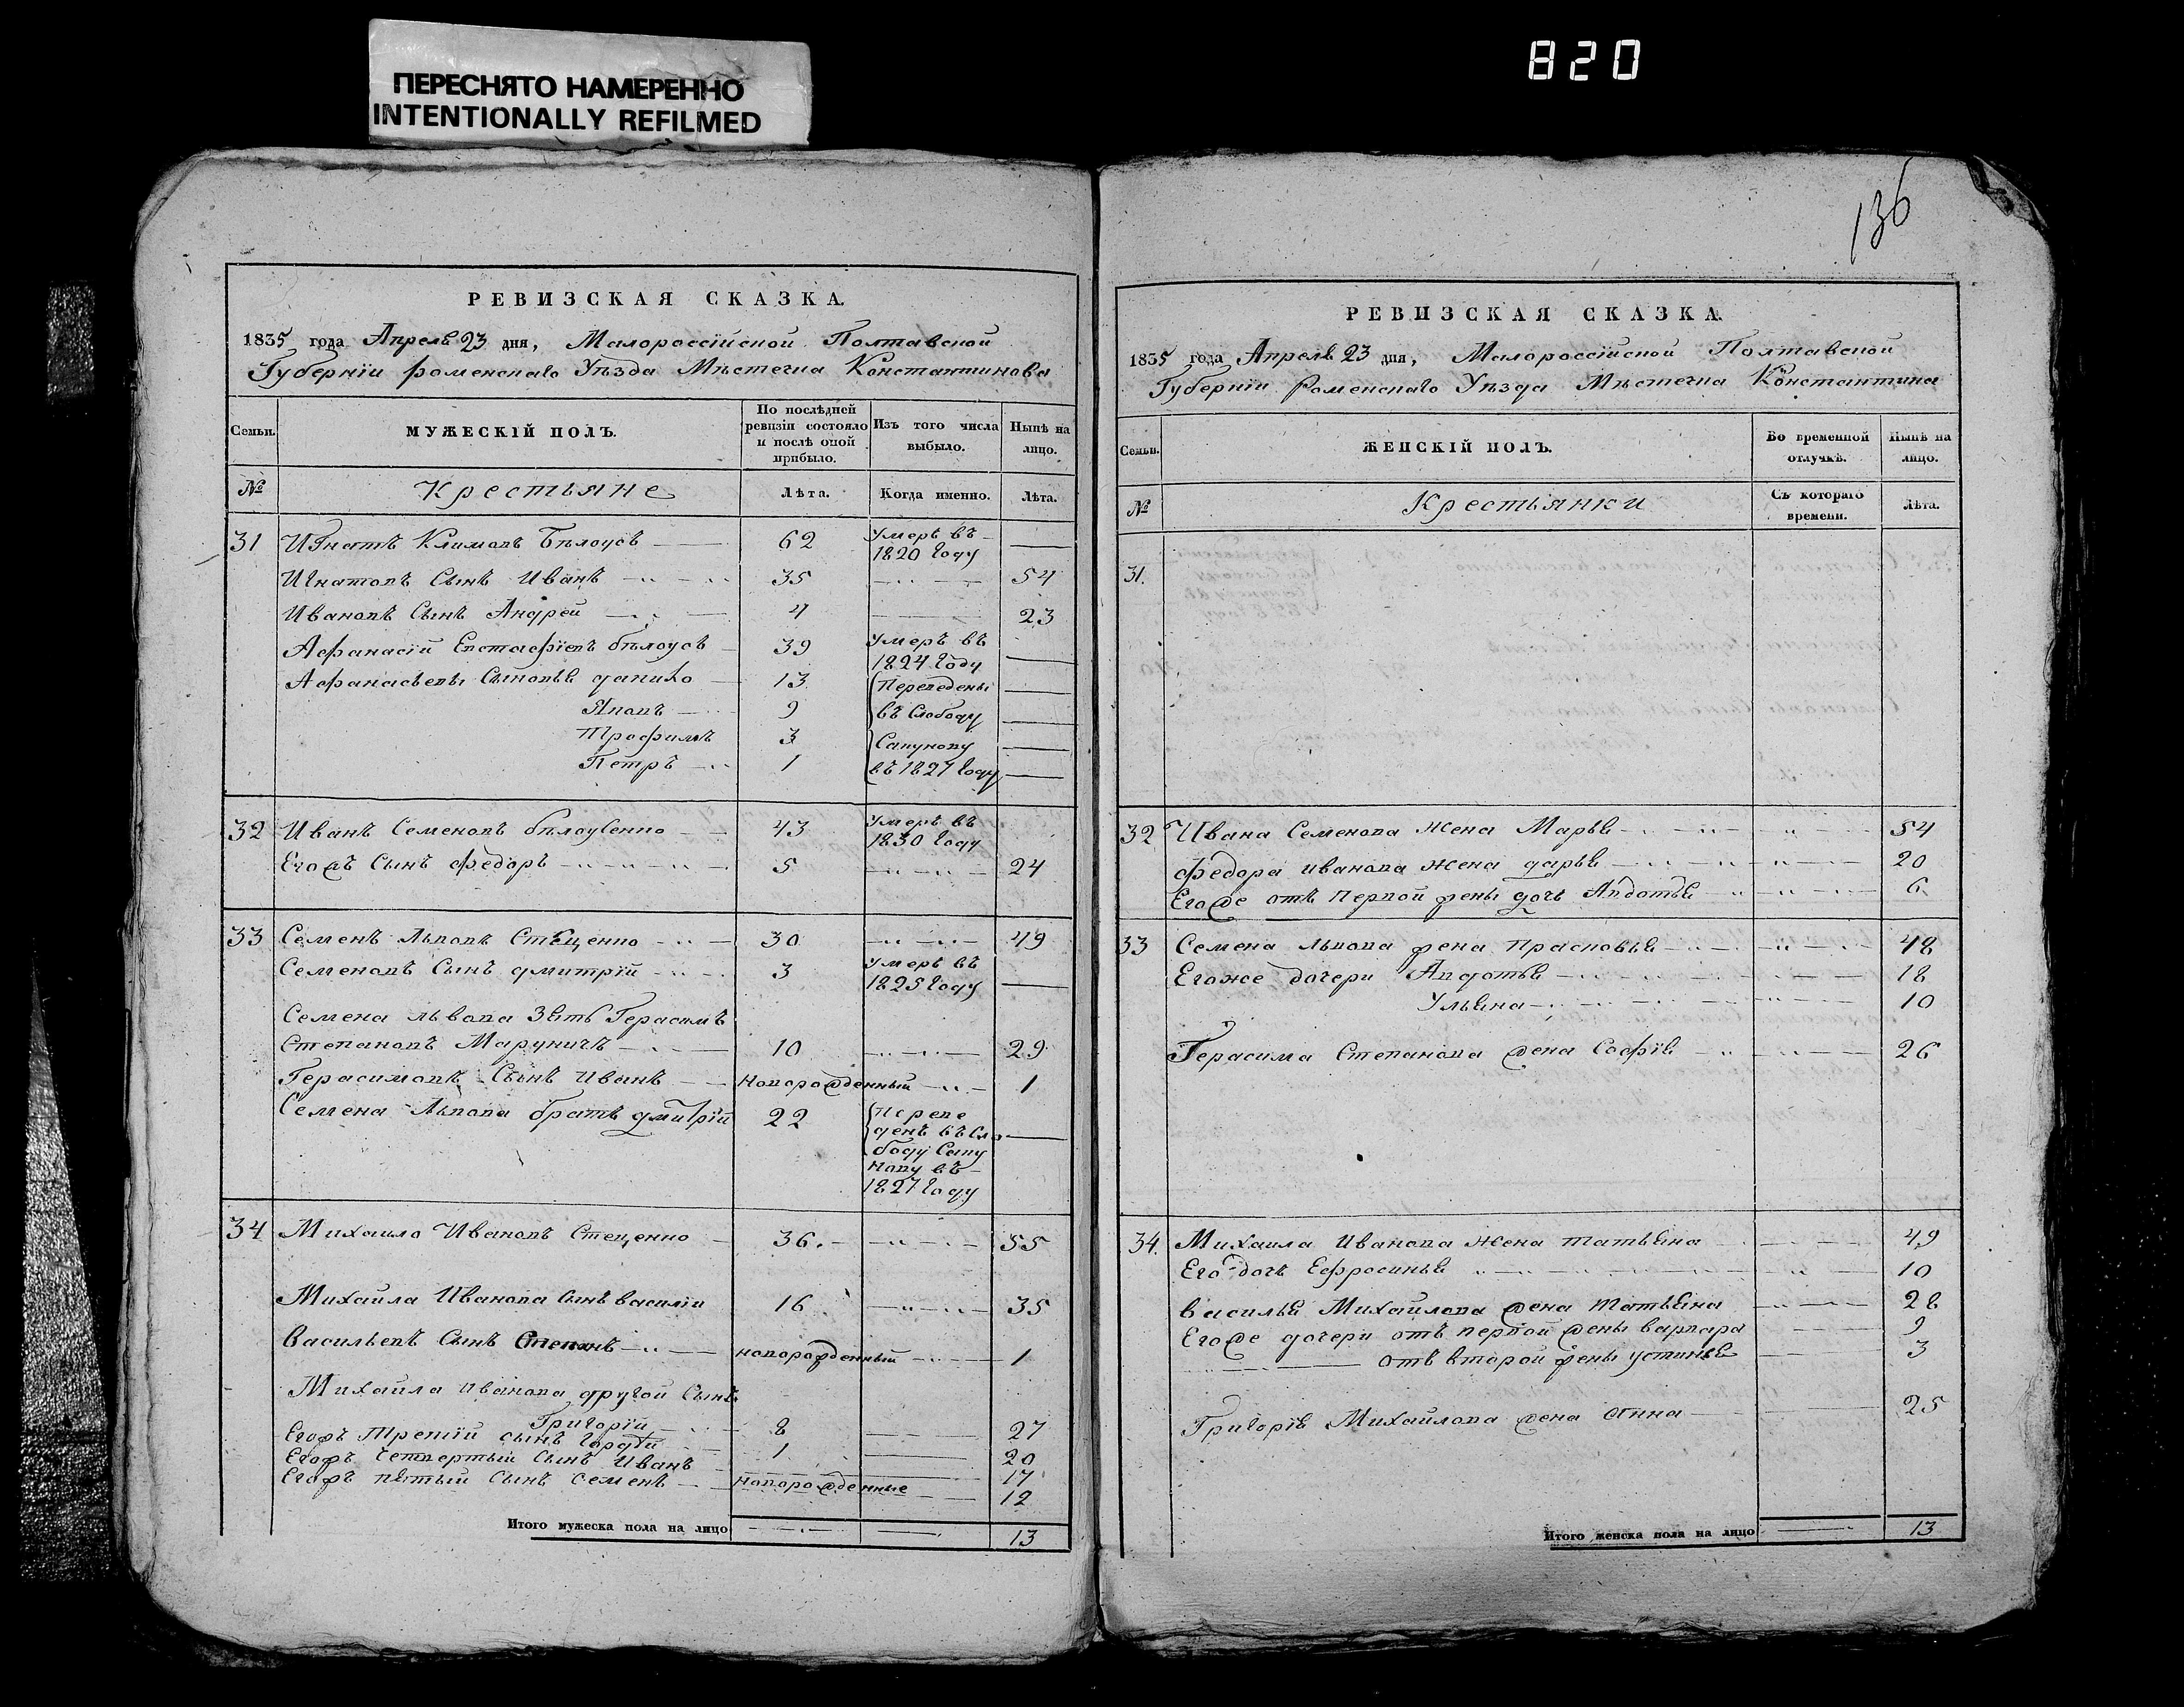 ПЕРЕСНЯТО НАМЕРЕННО
INTENTIONALLY REFILMED
820
136
РЕВИЗСКАЯ СКАЗКА.
1835 года Апреля 23 дня, Малороссійской Полтавской
Губерніи роменскаго Уѣзда Мѣстечка Константинова
Семьи.
МУЖЕСКІЙ ПОЛЪ.
По послѣдней ревизіи состояло и послѣ оной прибыло.
Изъ того числа выбыло.
Нынѣ на лицо.
№ Крестьяне Лѣта. Когда именно. Лѣта.
31 Игнатъ Климовъ Бѣлоусъ 62 Умеръ въ 1820 году
Игнатовъ Сынъ Иванъ 35 54
Ивановъ Сынъ Андрей 4 23
Афанасій Евстафіевъ бѣлоусъ 39 Умеръ въ 1824 году
Афанасьевы Сыновья данило 13 Переведены
Яковъ 9 въ Слободу
Трофимъ 3 Сапунову
Петръ 1 въ 1827 году
32 Иванъ Семеновъ бѣлоусенко 43 Умеръ въ 1830 году
Егожъ Сынъ федоръ 5 24
33 Семенъ Львовъ Стеценко 30 49
Семеновъ Сынъ дмитрій 3 Умеръ въ 1825 году
Семена львова Зять Герасимъ
Степановъ Маруничъ 10 29
Герасимовъ Сынъ Иванъ новорожденный 1
Семена Львова братъ дмитрій 22 Переве
денъ въ Сло
боду Сапу
нову въ
1827 году
34 Михаило Ивановъ Стеценко 36 55
Михайла Иванова Сынъ василій 16 35
Васильевъ Сынъ Степанъ новорожденный 1
Михайла иванова другой Сынъ
Григорій 8 27
Егожъ третій сынъ Гордѣй 1 20
Егожъ четвертый сынъ Иванъ 17
Егожъ пятый сынъ Семенъ новорожденные 12
Итого мужеска пола на лицо 13
РЕВИЗСКАЯ СКАЗКА.
1835 года Апреля 23 дня, Малороссійской Полтавской
Губерніи Роменскаго Уѣзда Мѣстечка Константина
Семьи.
ЖЕНСКІЙ ПОЛЪ.
Во временной отлучкѣ.
Нынѣ на лицо.
№ Крестьянки Съ котораго времени. Лѣта.
31.
32 Ивана Семенова жена Марья 54
федора иванова жена дарья 20
Егоже отъ первой жены дочь Авдотья 6
33 Семена львова жена прасковья 48
Егоже дочери Авдотья 18
Ульяна 10
Герасима Степанова жена Софія 26
34. Михаила Иванова жена татьяна 49
Его дочь Ефросинья 10
василья Михайлова жена татьяна 28
Егоже дочери отъ первой жены варвара 9
отъ второй жены устинья 3
Григорія Михайлова жена Анна 25
Итого женска пола на лицо 13